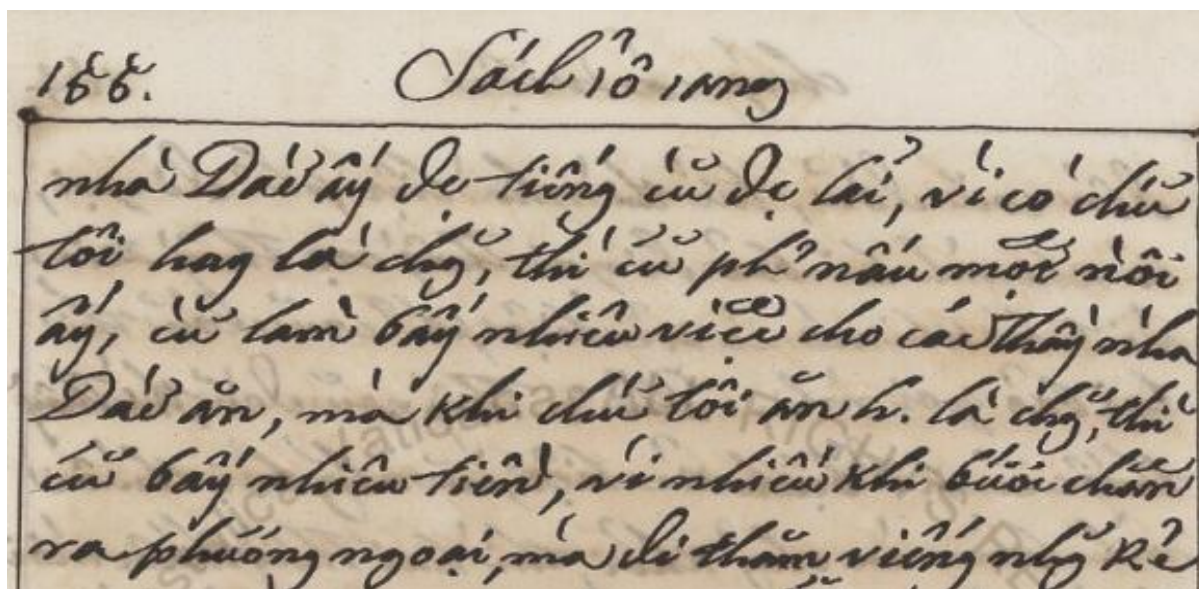 188. Sách sổ sang
nhà Đaó ấy để tiếng cũ để lại, vì có chú
tôi hay là chg̃, thì cũ ph̉ nấu một nồi
ấy, cũ làm bấy nhiêu viẽc cho các thầy nhà
Đaó ăn, mà khi chú tôi ăn h. là chg̃, thì
cũ bấy nhiêu tiền, vì nhiều khi buổi chãn
ra phường ngoại, mà đi thăm viếng nhg̃ kẻ